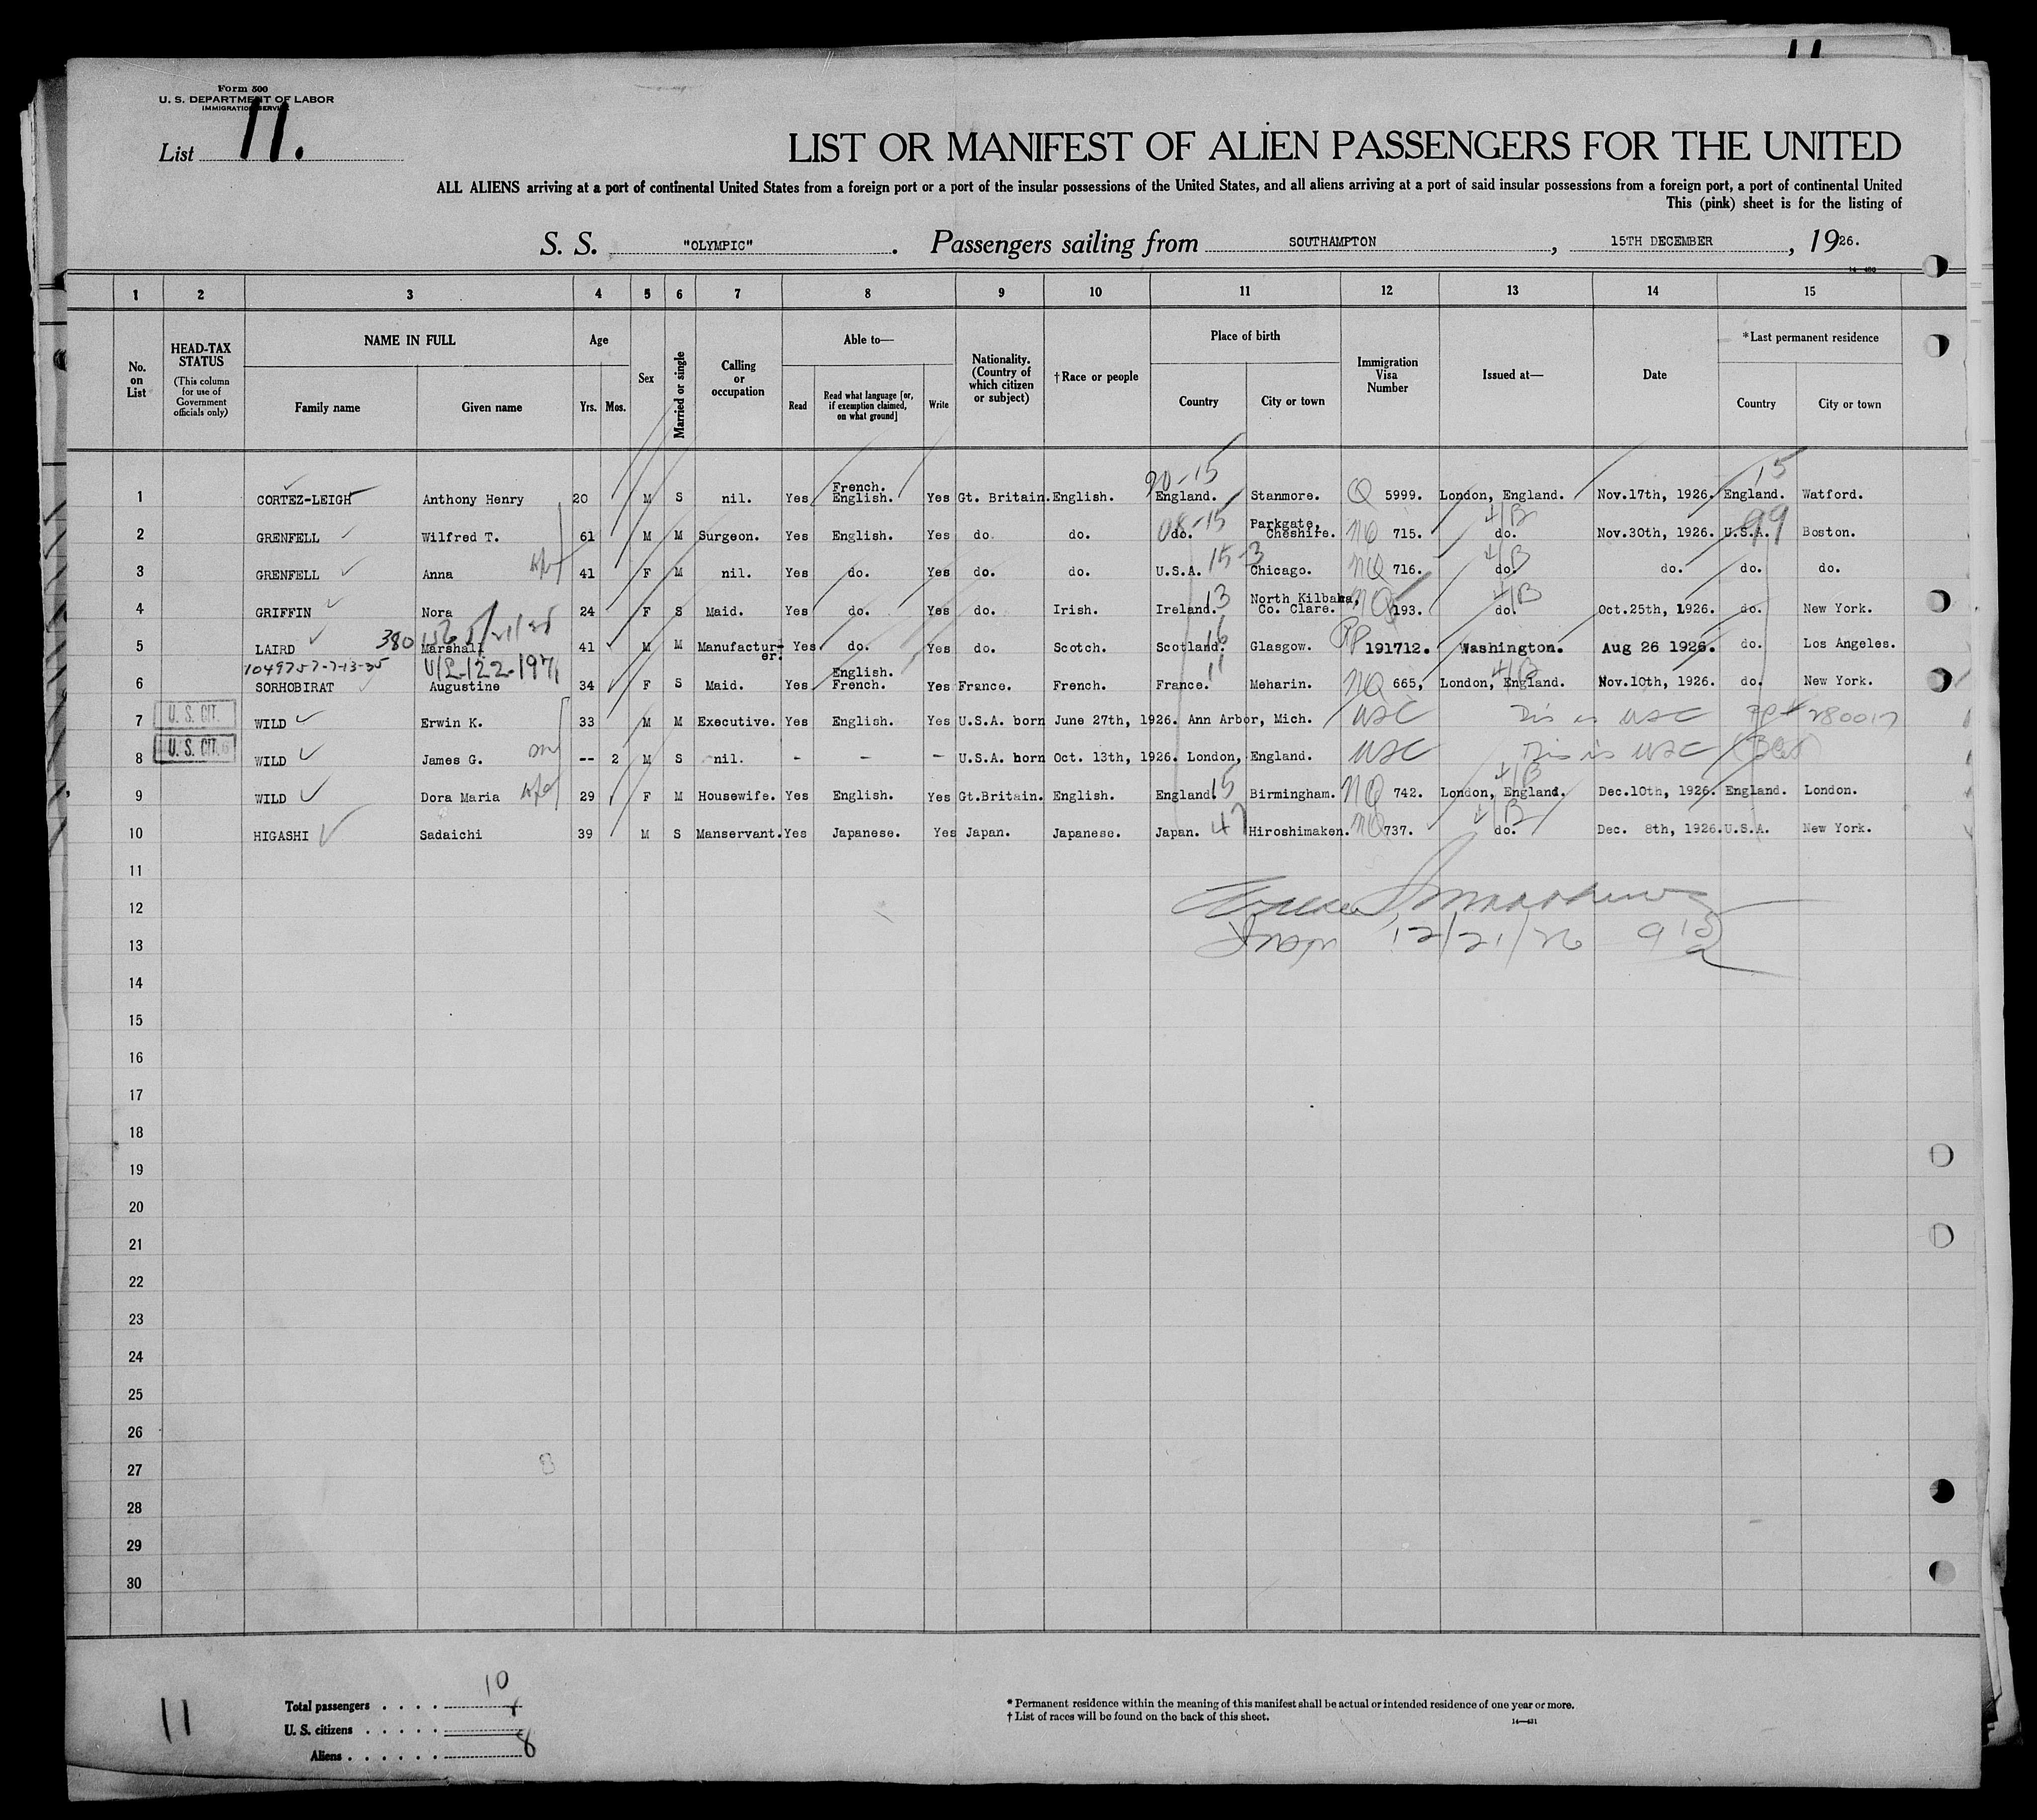 11
Form 500
U. S. DEPARTMENT OF LABOR
IMMIGRATION SERVICE
List 11.
LIST OR MANIFEST OF ALIEN PASSENGERS FOR THE UNITED
ALL ALIENS arriving at a port of continental United States from a foreign port or a port of the insular possessions of the United States, and all aliens arriving at a port of said insular possessions from a foreign port, a port of continental United
This (pink) sheet is for the listing of
S. S. "OLYMPIC" . Passengers sailing from SOUTHAMPTON , 15TH DECEMBER , 1926.
14—430
1 2 3 4 5 6 7 8 9 10 11 12 13 14 15
No. on List
HEAD-TAX STATUS
(This column for use of Government officials only)
NAME IN FULL
Family name Given name
Age
Yrs. Mos.
Sex
Married or single
Calling or occupation
Able to—
Read
Read what language [or, if exemption claimed, on what ground]
Write
Nationality. (Country of which citizen or subject)
†Race or people
Place of birth
Country City or town
Immigration Visa Number
Issued at—
Date
*Last permanent residence
Country City or town
20-15 15
1 CORTEZ-LEIGH Anthony Henry 20 M S nil. Yes French. English. Yes Gt. Britain. English. England. Stanmore. Q 5999. London, England. Nov.17th, 1926. England. Watford.
2 GRENFELL Wilfred T. 61 M M Surgeon. Yes English. Yes do. do. do. 08-15 Parkgate, Cheshire. NQ 715. 4/B do. Nov.30th, 1926. U.S.A. 99 Boston.
3 GRENFELL Anna 41 F M nil. Yes do. Yes do. do. U.S.A. 15-3 Chicago. NQ 716. 4/B do. do. do. do.
4 GRIFFIN Nora 24 F S Maid. Yes do. Yes do. Irish. Ireland. 13 North Kilbaha, Co. Clare. NQ 193. 4/B do. Oct.25th, 1926. do. New York.
380
5 LAIRD Marshall 41 M M Manufacturer. Yes do. Yes do. Scotch. Scotland. 16 Glasgow. PP 191712. Washington. Aug 26 1926. do. Los Angeles.
1049757-7-13-35 V/L-122-1971
6 SORHOBIRAT Augustine 34 F S Maid. Yes English. French. Yes France. French. France. 11 Meharin. NQ 665, 4/B London, England. Nov.10th, 1926. do. New York.
7 U. S. CIT. WILD Erwin K. 33 M M Executive. Yes English. Yes U.S.A. born June 27th, 1926. Ann Arbor, Mich. USC This is USC PP# 280017
8 U. S. CIT. WILD James G. -- 2 M S nil. - - - U.S.A. born Oct. 13th, 1926. London, England. USC This is USC
9 WILD Dora Maria 29 F M Housewife. Yes English. Yes Gt.Britain. English. England. 15 Birmingham. NQ 742. 4/B London, England. Dec.10th, 1926. England. London.
10 HIGASHI Sadaichi 39 M S Manservant. Yes Japanese. Yes Japan. Japanese. Japan. 47 Hiroshimaken. NQ 737. 4/B do. Dec. 8th, 1926. U.S.A. New York.
11
12
13 Insp 12/21/26
14
15
16
17
18
19
20
21
22
23
24
25
26
27
28
29
30
11
Total passengers . . . . 10
U. S. citizens . . . . .
Aliens . . . . . . 8
* Permanent residence within the meaning of this manifest shall be actual or intended residence of one year or more.
† List of races will be found on the back of this sheet.
14—431